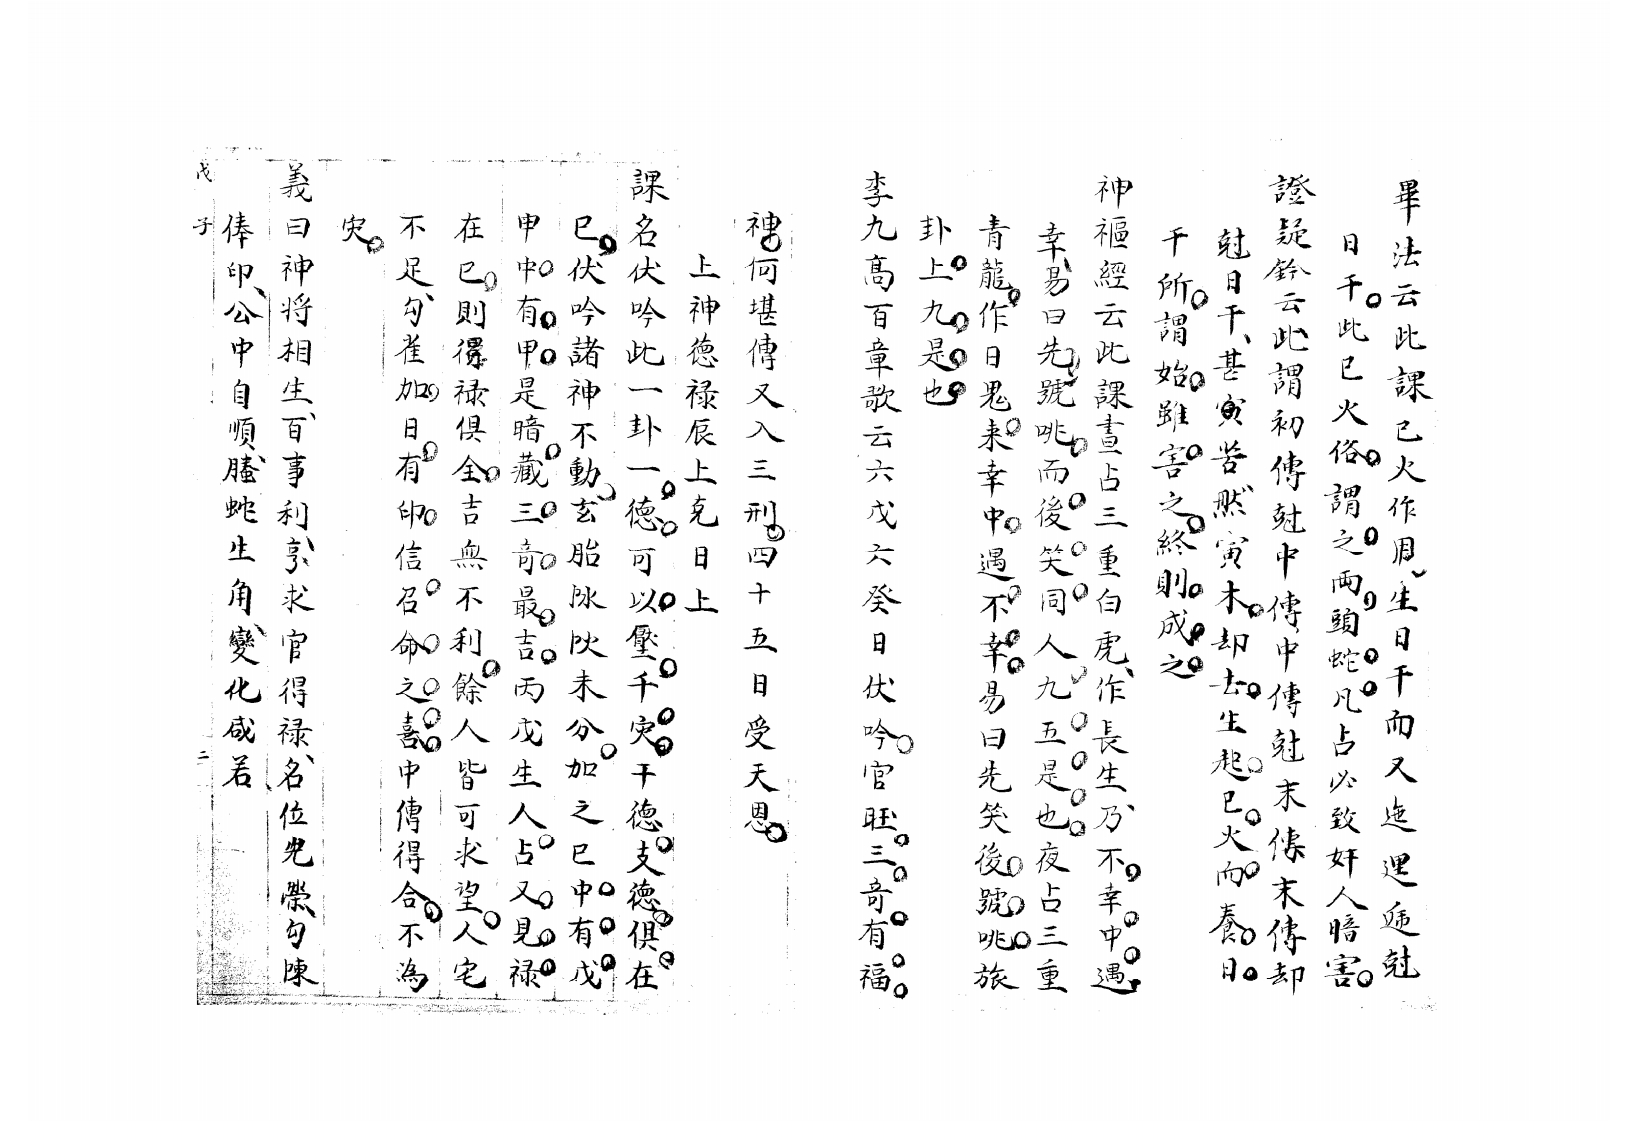 畢法云此課巳火作周生日干而又迤逦递尅
日干此巳火俗謂之兩頭蛇凡占必致奸人暗害
證疑鈐云此謂初傳尅中傳中傳尅末傳末傳却
尅日干甚寅苦然寅木却去生起巳火而養日
干所謂始雖害之終則成之
神樞經云此課晝占三重白虎作長生乃不幸中遇
幸易曰先號咷而後笑同人九五是也夜占三重
青龍作日鬼来幸中遇不幸易曰先笑後號咷旅
卦上九是也
李九萬百章歌云六戊六癸日伏吟官旺三奇有福
神何堪傳又入三刑四十五日受天恩
上神德祿辰上克日上
課名伏吟此一卦一德可以壓千灾干德支德俱在
巳伏吟諸神不動玄胎脉陝未分加之巳中有戊
申中有甲是暗藏三奇最吉丙戊生人占又見祿
在巳則得祿俱全吉無不利餘人皆可求望人宅
不足勾雀加日有印信召命之喜中傳得合不為
灾
義曰神將相生百事利亨求官得祿名位光榮勾陳
俸印公中自順螣蛇生角變化咸若
戊子 二